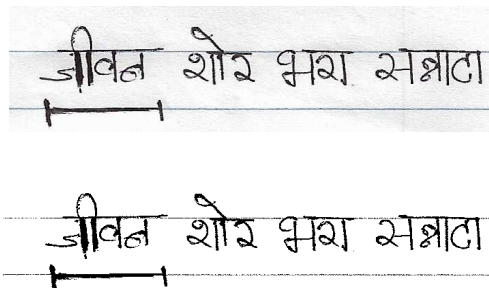 जीवन शोर भरा सन्नाटा
जीवन शोर भरा सन्नाटा